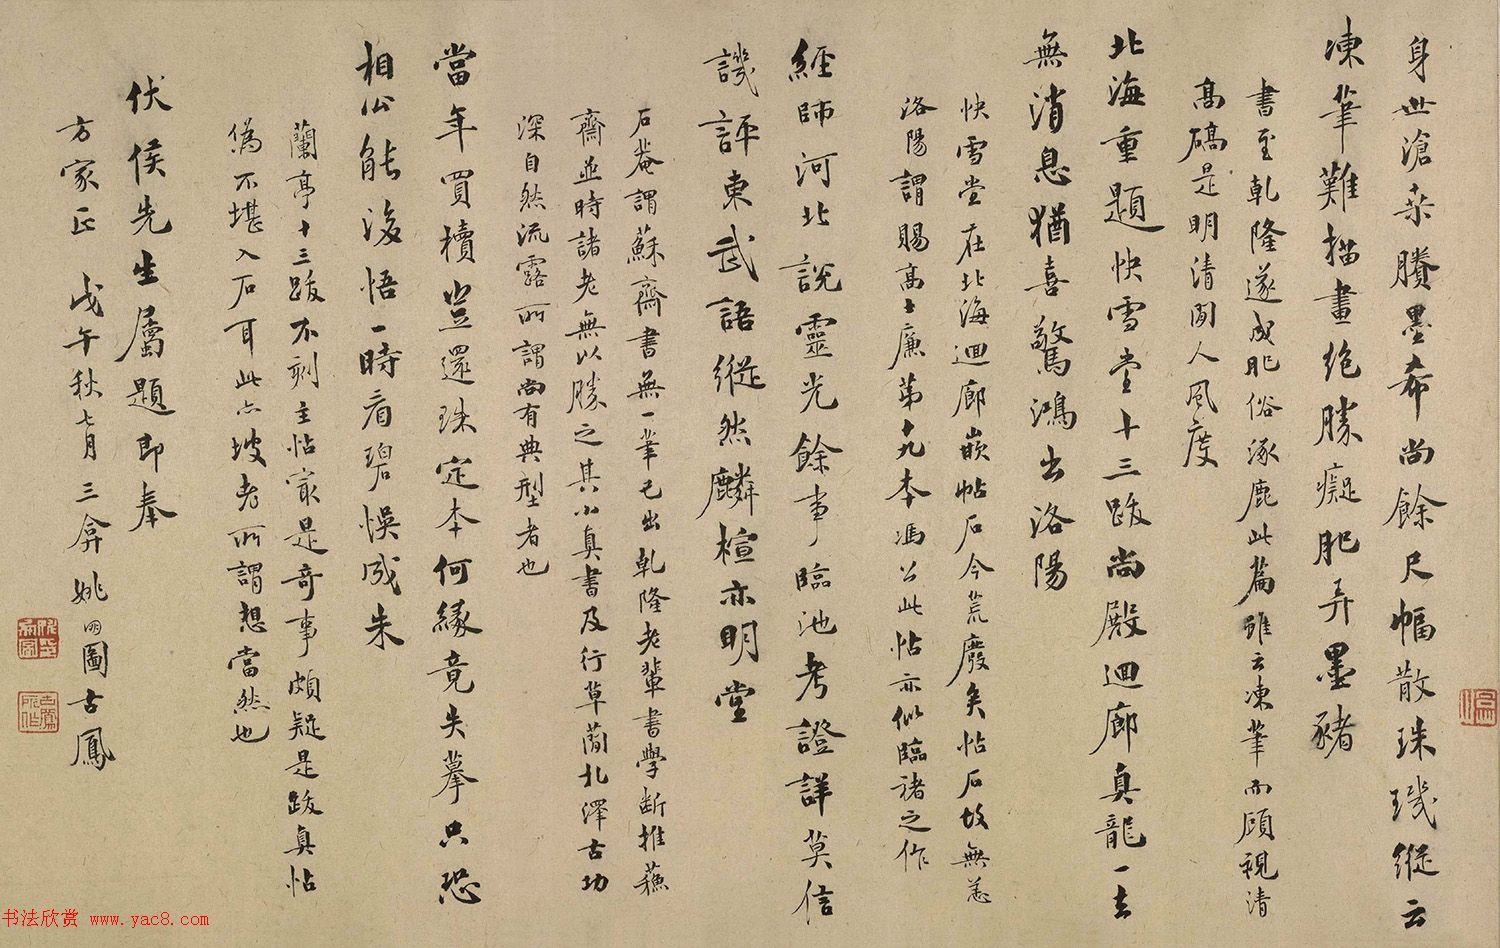 身世滄桑賸墨希尚餘尺幅散珠璣縱云
凍筆難描畫絶勝癡肥弄墨豬
書至乾隆遂成肥俗涿鹿此篇雖云凍筆而顧視清
高礄是明清間人風度
北海重題快雪堂十三跋尚殿迴廊真龍一去
無消息猶喜驚鴻出洛陽
快雪堂在北海迴廊嵌帖石今荒廢矣帖石故無恙
洛陽謂賜高士廉第十九本馮公此帖亦似臨褚之作
經師河北說靈光餘事臨池考證詳莫信
譏評東武語縱然麟楦亦明堂
石菴謂蘇齋書無一筆己出乾隆老輩書學斷推蘇
齋並時諸老無以勝之其小真書及行草蕑札澤古功
深自然流露所謂尚有典型者也
當年買櫝豈還珠定本何緣竟失摹只恐
相公能後悟一時看碧悞成朱
蘭亭十三跋不刻主帖寂是奇事頗疑是跋真帖
偽不堪入石耳此亦坡老所謂想當然也
伏侯先生屬題即奉
方家正 戊午秋七月三弇姚明圖古鳳
书法欣赏 www.yac8.com